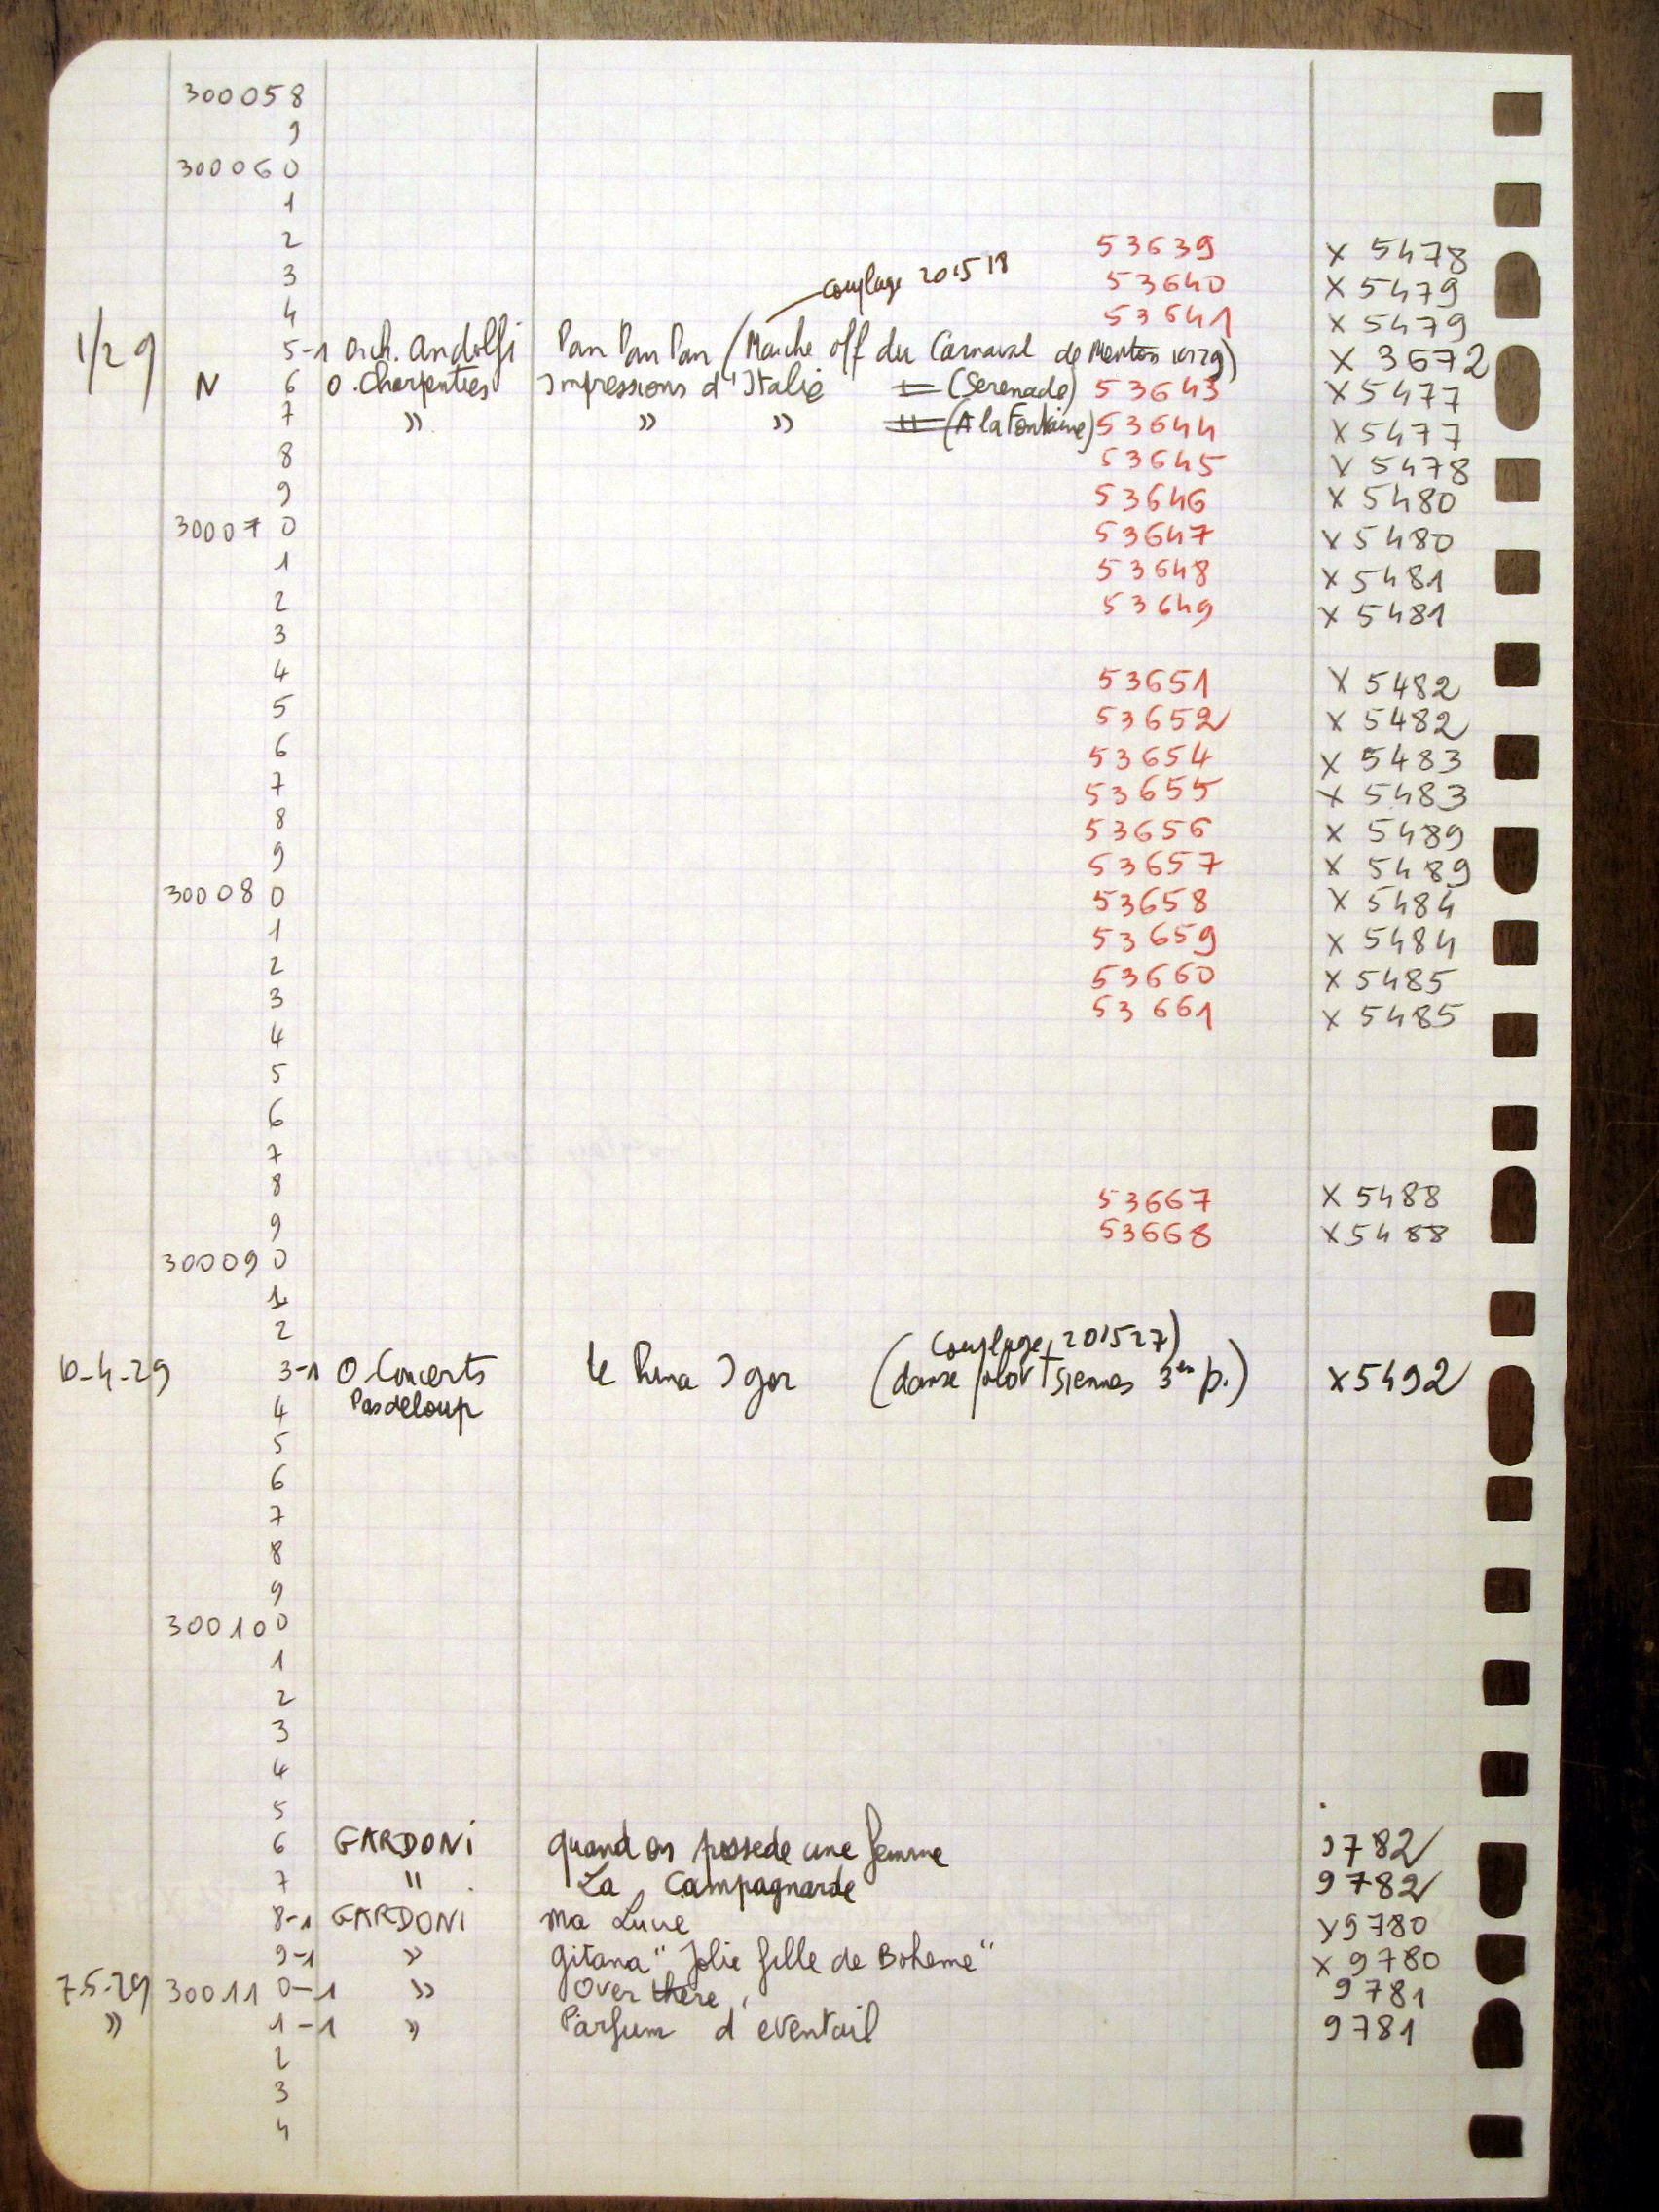 300058
9
300060
1
2 53639 X 5478
couplage 201518
3 53640 X 5479
4 53641 X 5479
1/29 5-1 Orch. Andolfi Pan Pan Pan (Marche off du Carnaval de Menton 1929) X 3672
N 6 O. Charpentier Impressions d'Italie (Serenade) 53643 X 5477
7 » » » (A la Fontaine) 53644 X 5477
8 53645 X 5478
9 53646 X 5480
300070 53647 X 5480
1 53648 X 5481
2 53649 X 5481
3
4 53651 X 5482
5 53652 X 5482
6 53654 X 5483
7 53655 X 5483
8 53656 X 5489
9 53657 X 5489
300080 53658 X 5484
1 53659 X 5484
2 53660 X 5485
3 53661 X 5485
4
5
6
7
8 53667 X 5488
9 53668 X 5488
300090
1
2
(Couplage 201527)
10-4-29 3-1 O. Concerts Le Igor (danse polovtsiennes 3em p.) X5492
4 Pasdeloup
5
6
7
8
9
300100
1
2
3
4
5
6 GARDONI quand on possede une femme 9782
7 " La Campagnarde 9782
8-1 GARDONI ma Lune X9780
9-1 » gitana "Jolie fille de Boheme" X 9780
7.5.29 300110-1 » Over there 9781
» 1-1 » Parfum d'eventail 9781
2
3
4